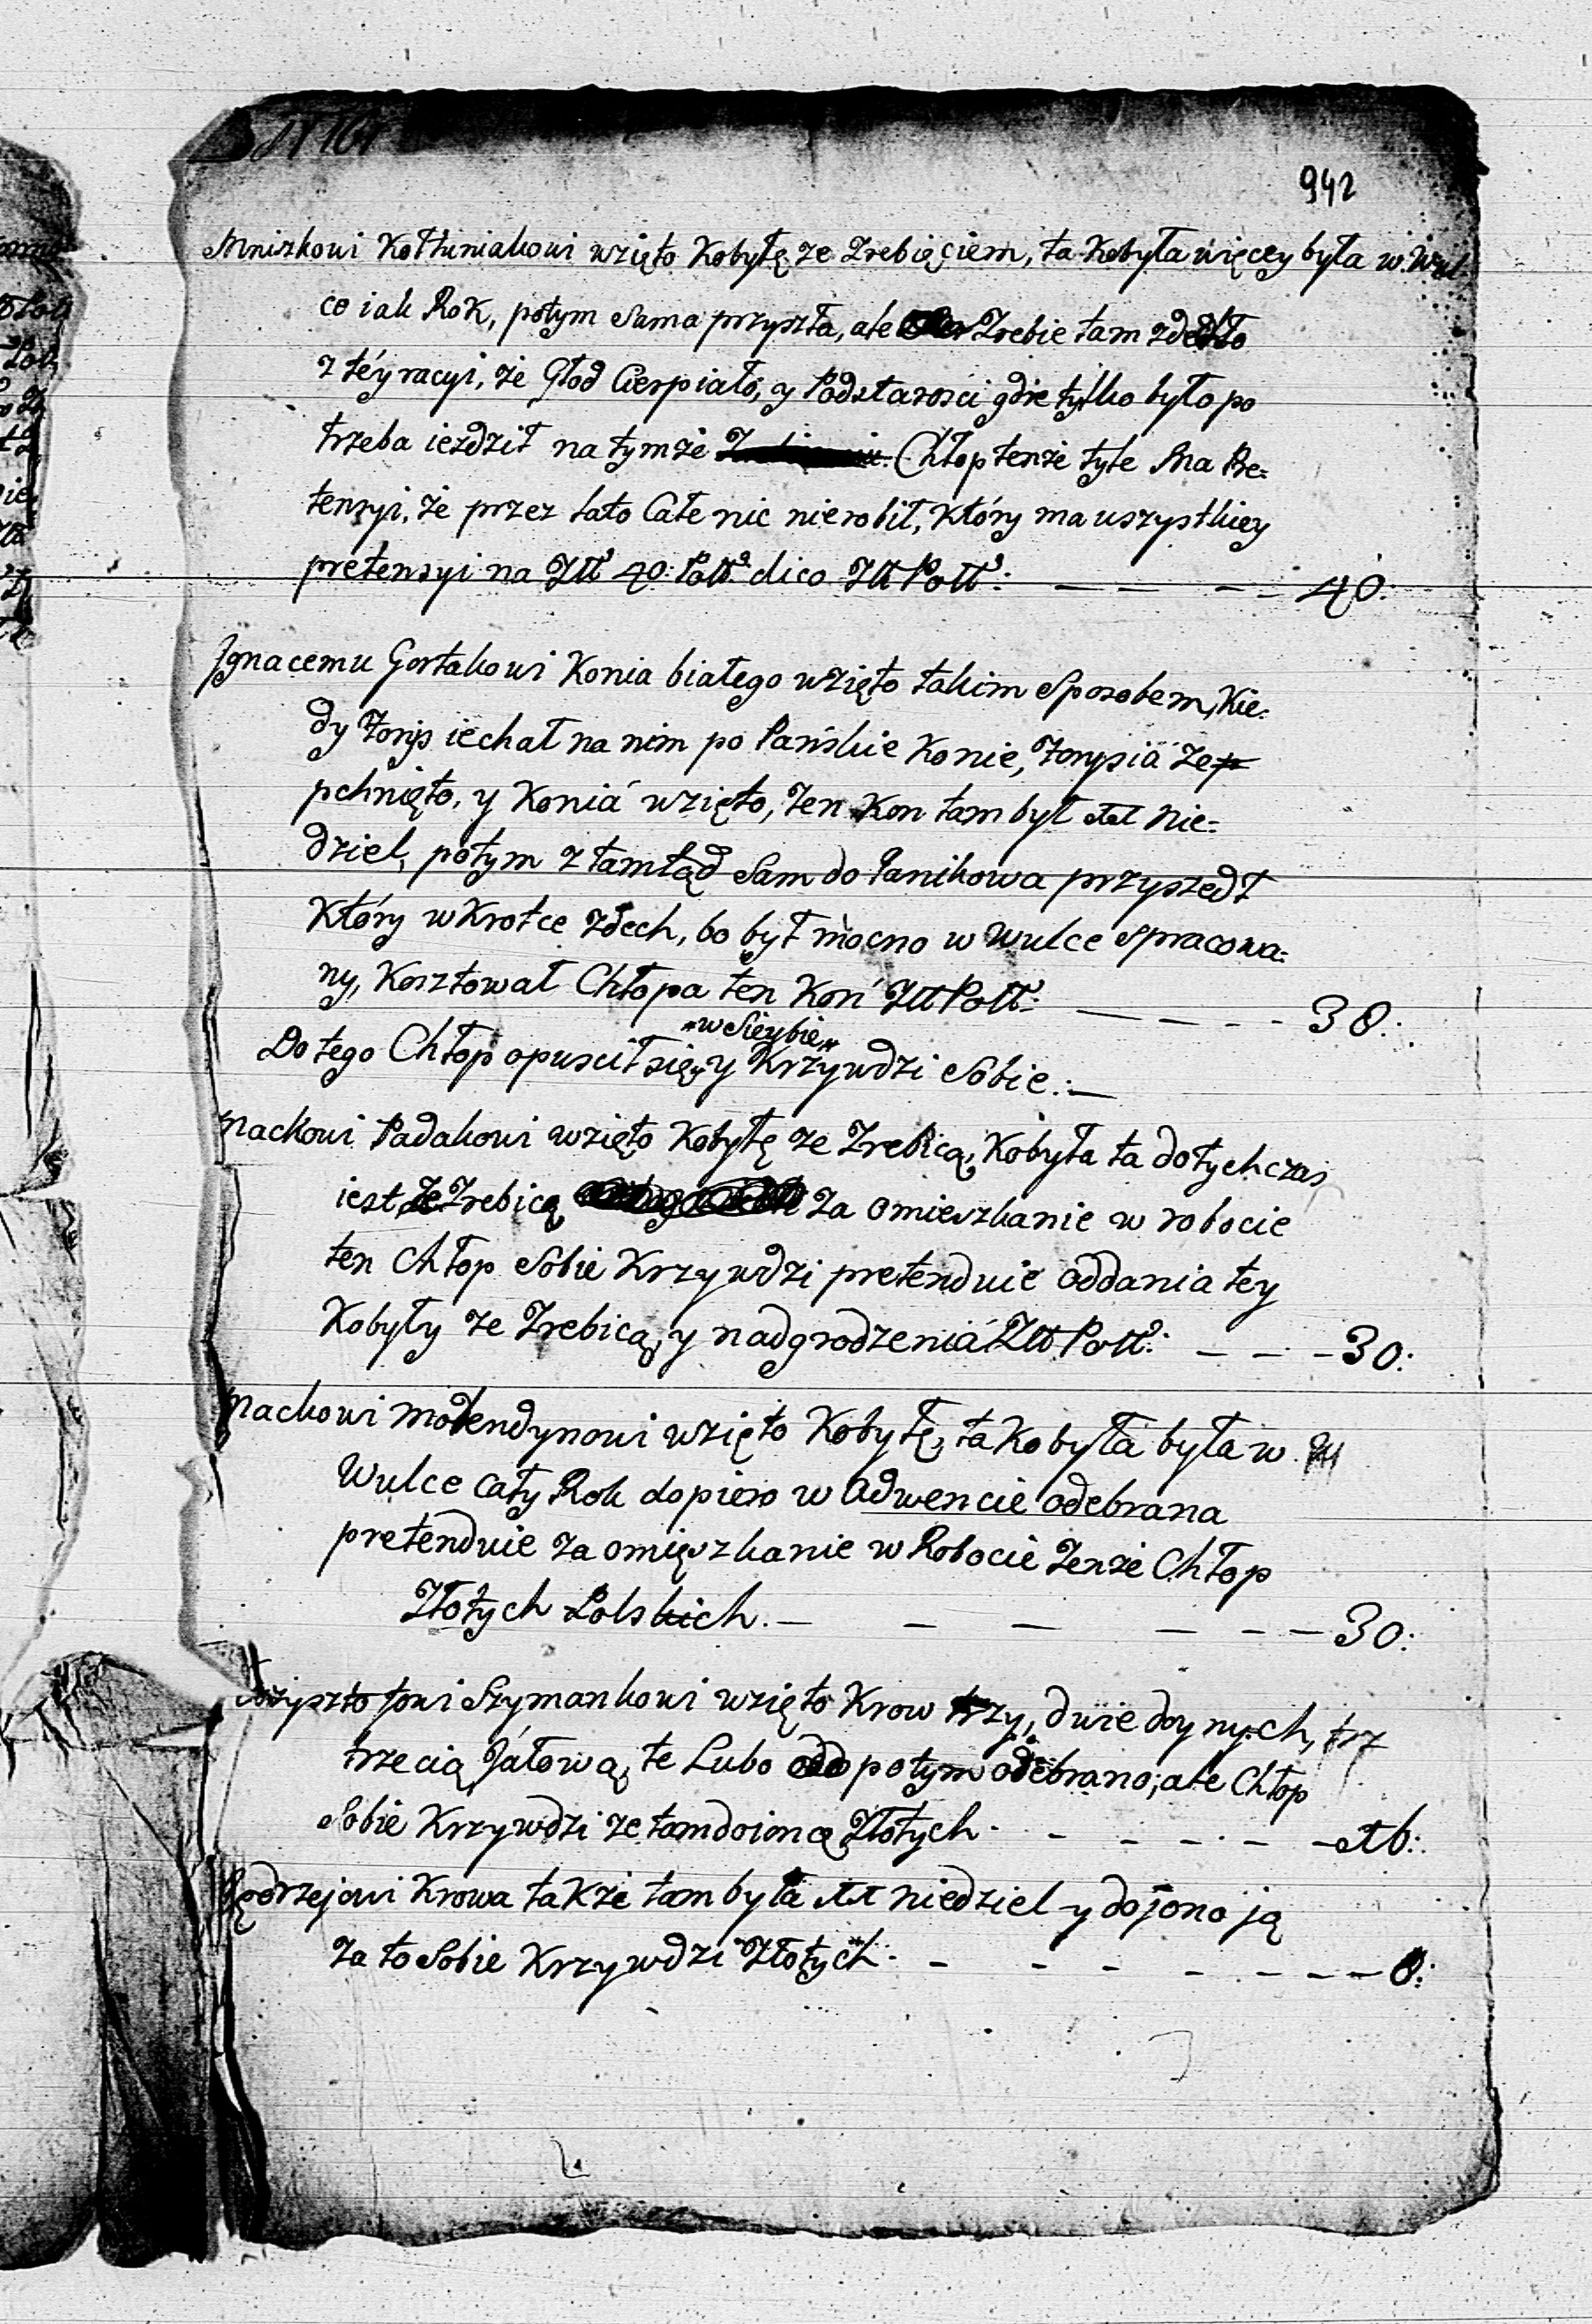 942
Mniszkowi Kołtuniakowi wzięto Kobyłę ze Zrebięciem, ta Kobyła więcey była w. Wul
ce iak Rok, potym Sama przyszła, ale Zrebie tam zdechło
z téy racyi, że Głod Cierpiało, y Podstarosci gdie tylko było po
trzeba iezdził na tymże Chłop tenże tyle Ma Pre:
tensyi, że przez lato Całe nic nierobił, który ma wszystkiey
pretensyi na Złł 40: Poll: dico Złł Poll: — — — — 40:
Jgnacemu Gortakowi Konia białego wzięto takim Sposobem, Kie:
dy Forys iechał na nim po Pańskie Konie, Forysiá Ze
pchnięto, y Koniá wzięto, Ten Kon tam był Nie:
dziel, potym z tamtąd Sam do Panikowa przyszedł
Który wKrotce zdech, bo był mocno w Wulce spracowa:
ny, Kosztował Chłopa ten Koń Złł Poll: — — — — 38:
w Sieybie
Do tego Chłop opuscił się y Krzywdzi Sobie: —
Mackowi Padakowi wzięto Kobyłę ze Zrebicą, Kobyła ta dotychczas
iest Ze Zrebicą Za omieszkanie w robocie
ten Chłop Sobie Krzywdzi pretenduie oddania tey
Kobyły ze Zrebicą, y nadgrodzeniá Złł Poll: — — — 30:
Mackowi Molendynowi wzięto Kobyłę, ta Kobyła była w.
Wulce cały Rok dopiero w Adwencie odebrana
pretenduie za omięszkanie w Robocie Tenże Chłop
Złotych Polskich. — — — — — — 30:
Szymankowi wzięto Krow trzy, dwie doynych, trz
trzecią Jáłową, te Lubo potym odebrano, ale Chłop
Sobie Krzywdzi ze tam dojono Złotych. - - - - -
Krowa także tam była niedziel y dojono ją
za to Sobie Krzywdzi Złotych. - - - - - - - 8: